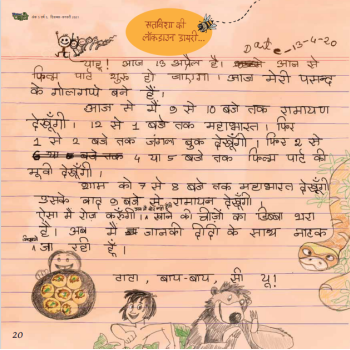 सतविशा की
लॉकडाउन डायरी...
Date - 13-4-20
याहू! आज 13 अप्रैल है। आज से
फिल्म पार्टी शुरु हो जाएगा। आज मेरी पसन्द
के गोलगप्पे बने हैं।
आज से मैं 9 से 10 बजे तक रामायण
देखूँगी। 12 से 1 बजे तक महाभारत। फिर
1 से 2 बजे तक जंगल बुक देखूँगी। फिर 2 से
4 या 5 बजे तक फिल्म पार्टी की
मूवी देखूँगी।
शाम को 7 से 8 बजे तक महाभारत देखूँगी
उसके बाद 9 बजे से रामायन देखूँगी।
ऐसा मैं रोज़ करुँगी। खाने की चीज़ों का डिब्बा भरा
है। अब मैं जानकी दीदी के साथ नाटक
जा रही हूँ।
टाटा, बाय-बाय, सी यू!
20